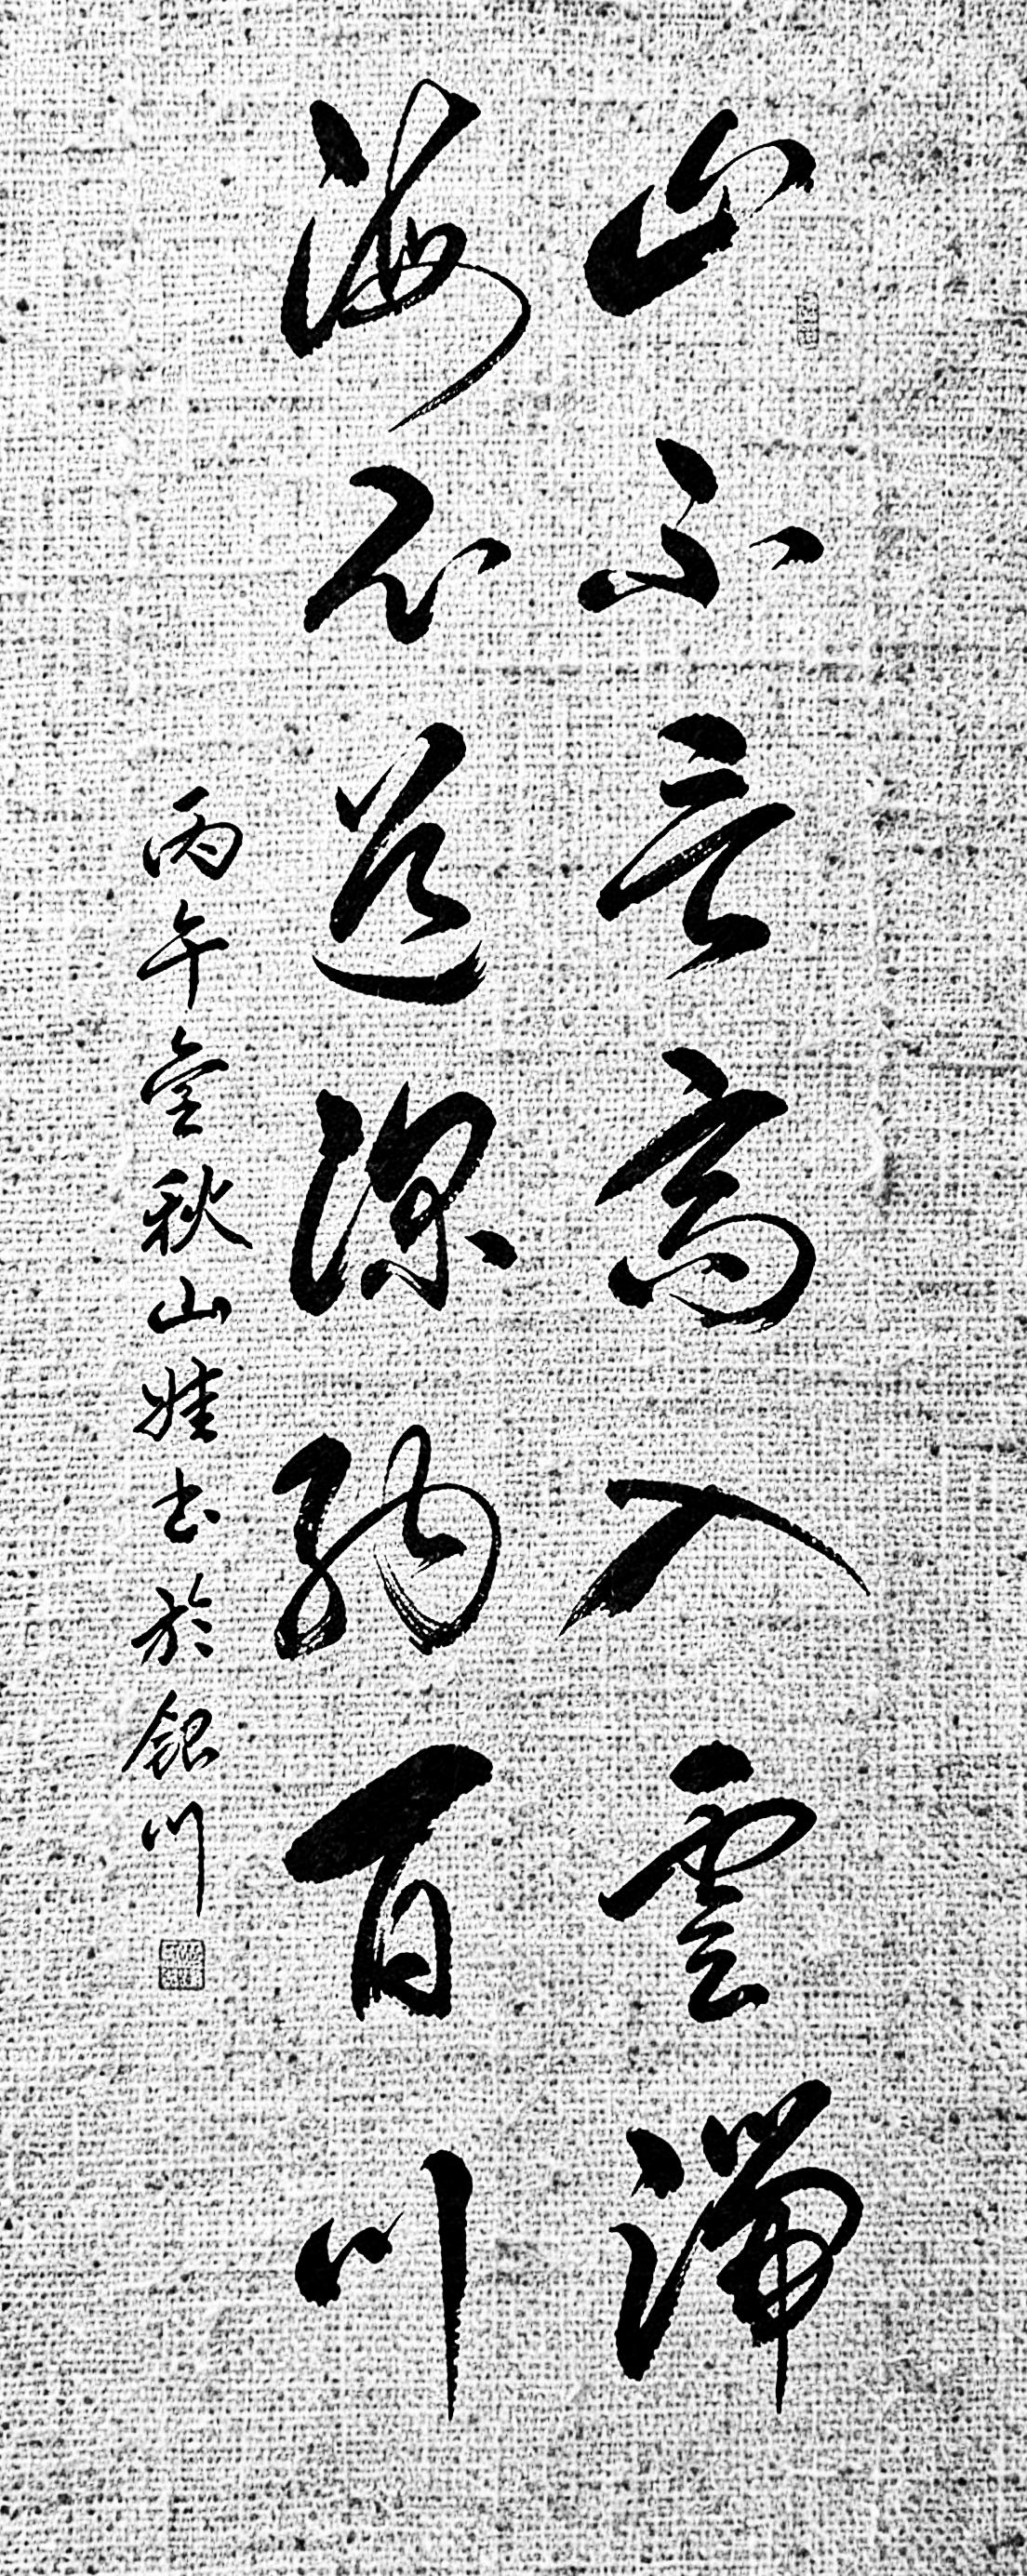 山不言高入雲端
海不道深納百川
丙午金秋山娃書於銀川